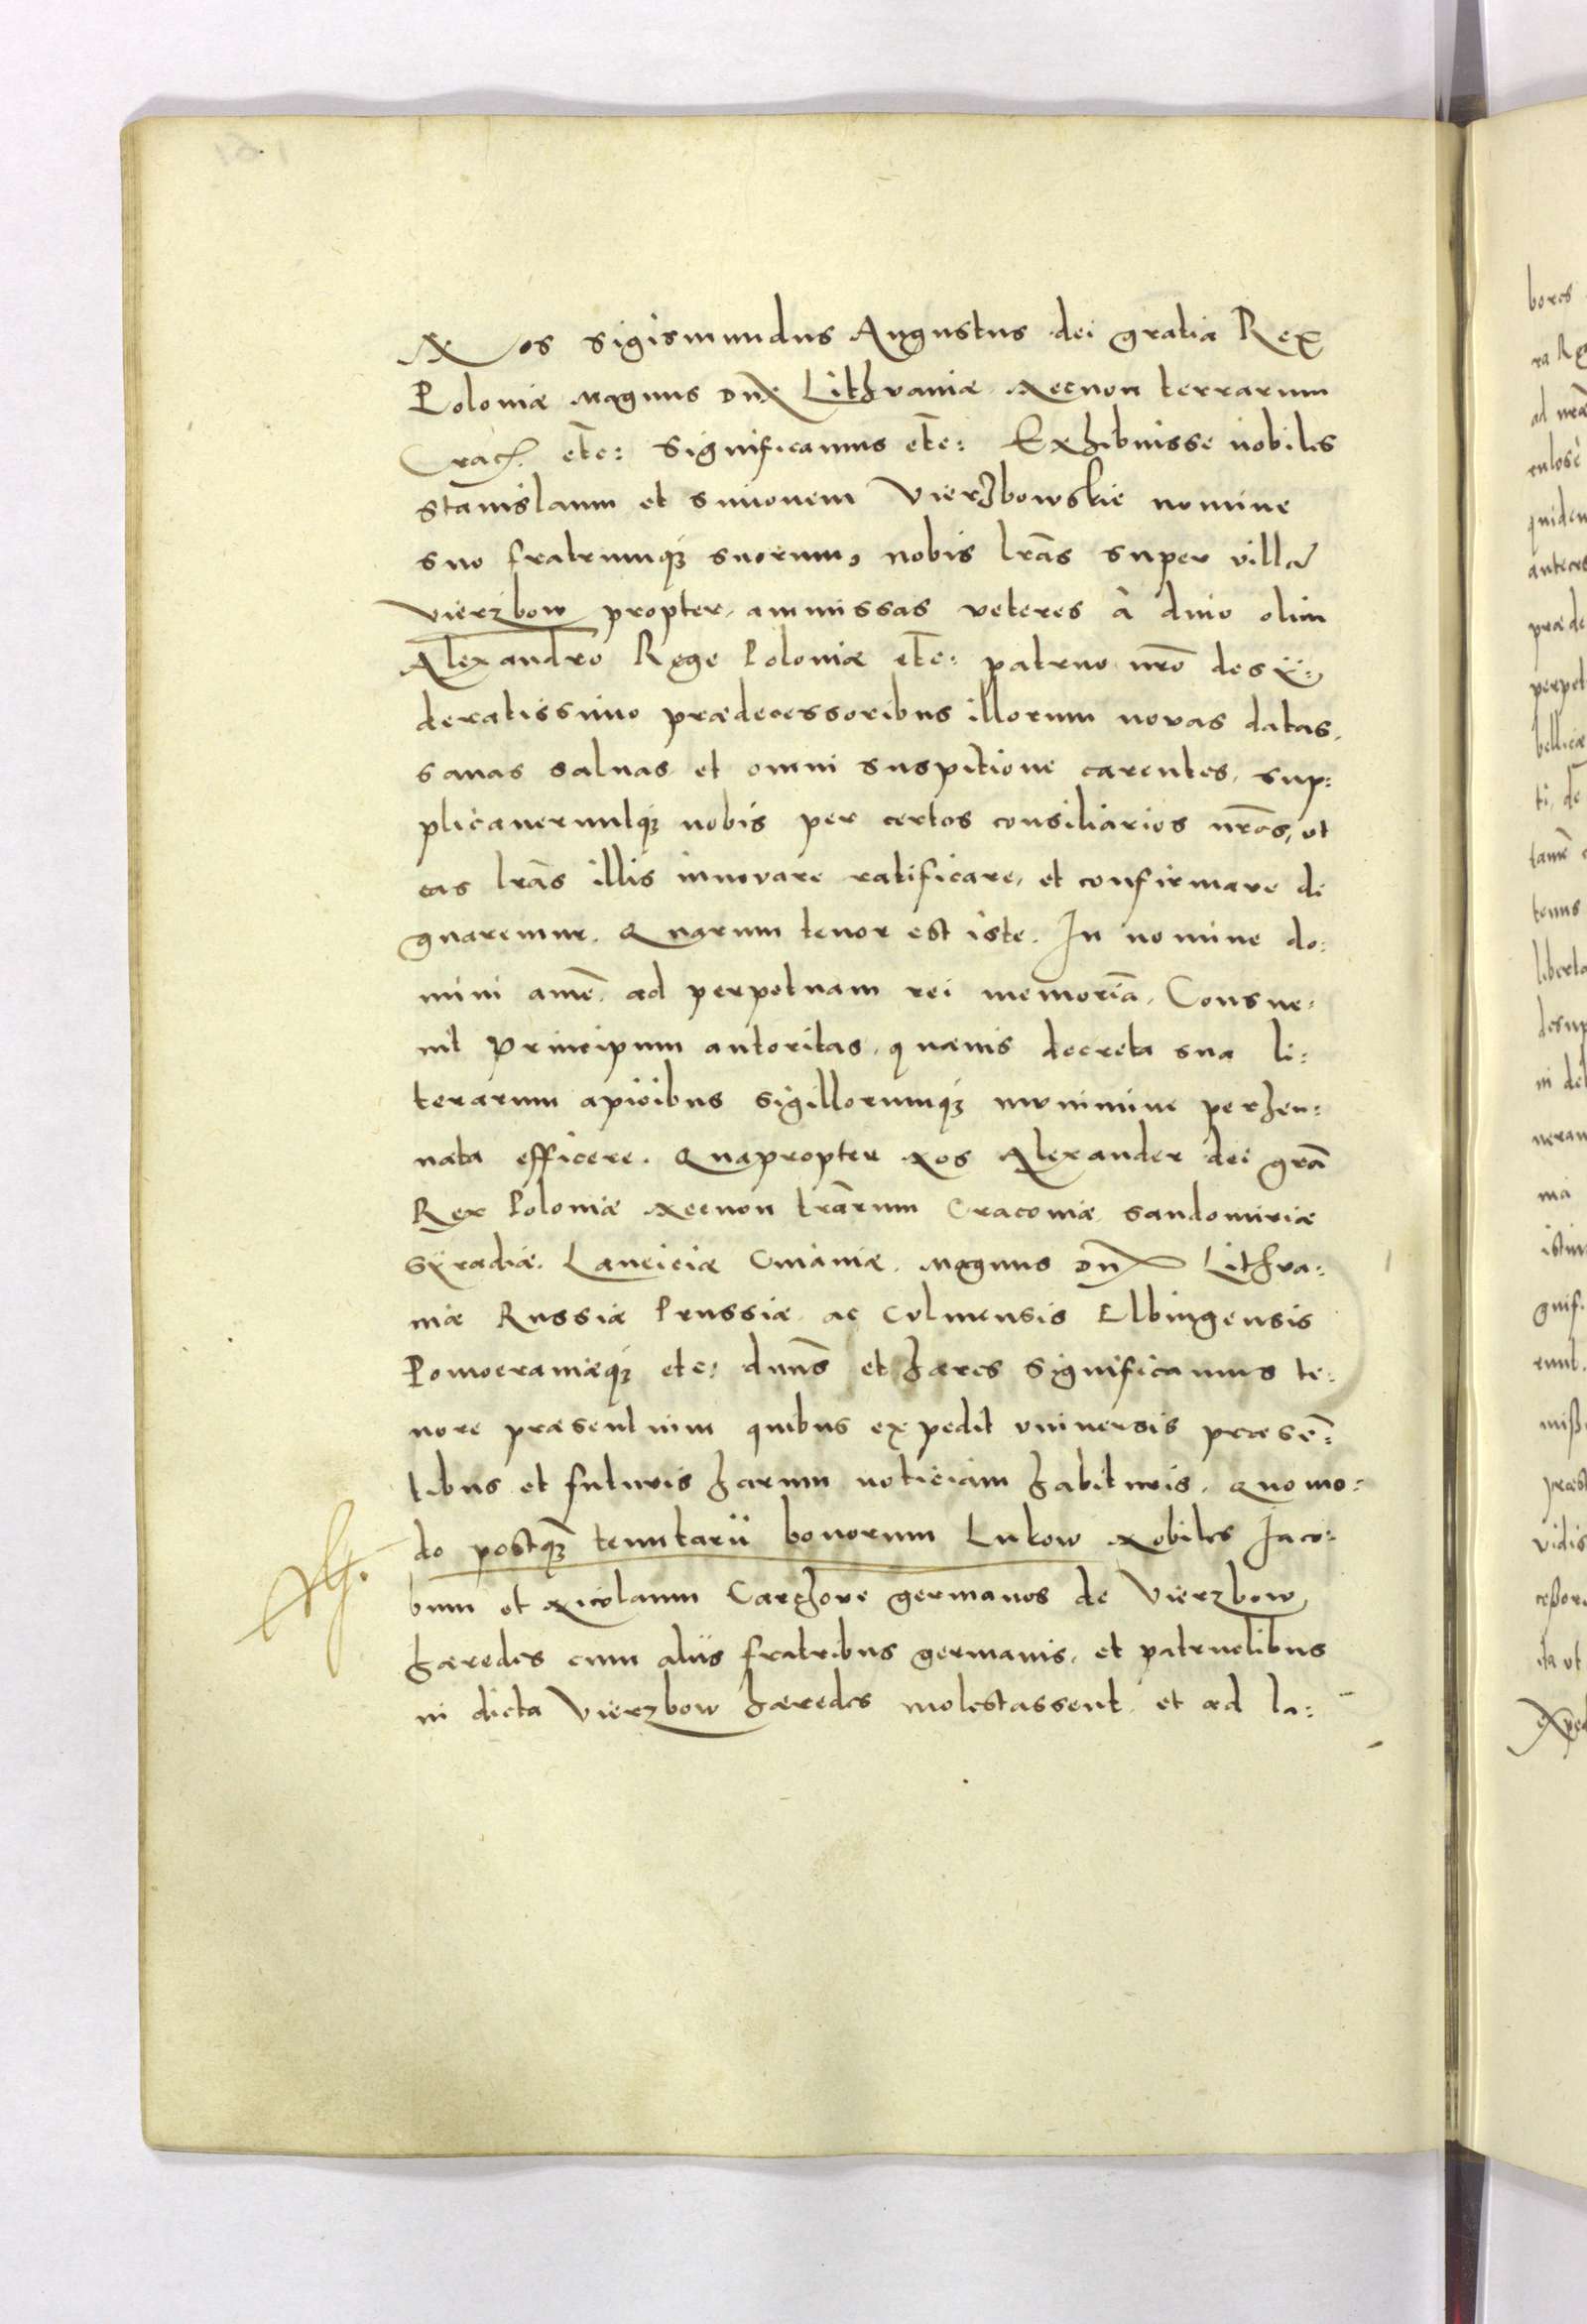 Nos Sigismundus Augustus dei gratia Rex
Poloniæ Magnus Dux Lithvaniæ Necnon terrarum
Crac. etc: Significamus etc: Exhibuisse nobiles
Stanislaum et Simonem Vierzbowskie nomine
suo fratrumq3 suorum, nobis lrãs super villa
Vierzbow propter ammissas veteres à diuo olim
Alexandro Rege Poloniæ etc: patruo nrõ desÿ:
deratissimo prædecessoribus illorum nouas datas,
sanas saluas et omni suspitione carentes, sup:
plicaueruntq3 nobis per certos consiliarios nrõs, vt
eas lrãs illis innovare ratificare, et confirmare di
gnaremur. Quarum tenor est iste. In nomine do:
mini amẽ. ad perpetuam rei memoriã. Consue:
uit Principum autoritas, quæuis decreta sua li:
terarum apicibus sigillorumq3 mvnimine perhen:
nata efficere. Quapropter Nos Alexander dei grã
Rex Poloniæ Necnon trãrum Cracouiæ Sandomiriæ
Sÿradiæ. Lanciciæ Cuiauiæ. Magnus Dux Lithva:
niæ Russiæ Prussiæ ac Cvlmensis Elbingensis
Pomoeraniæq3 etc: dnũs et hæres Significamus te:
nore præsentium quibus expedit vniuersis præsẽ:
tibus et futuris harum noticiam habituris. Quomo:
do postq3 tenutarii bonorum Lukow Nobiles Iaco:
bum et Nicolaum Carchove germanos de Vierzbow
hæredes cum aliis fratribus germanis, et patruelibus
in dicta Vierzbow hæredes molestassent et ad la: